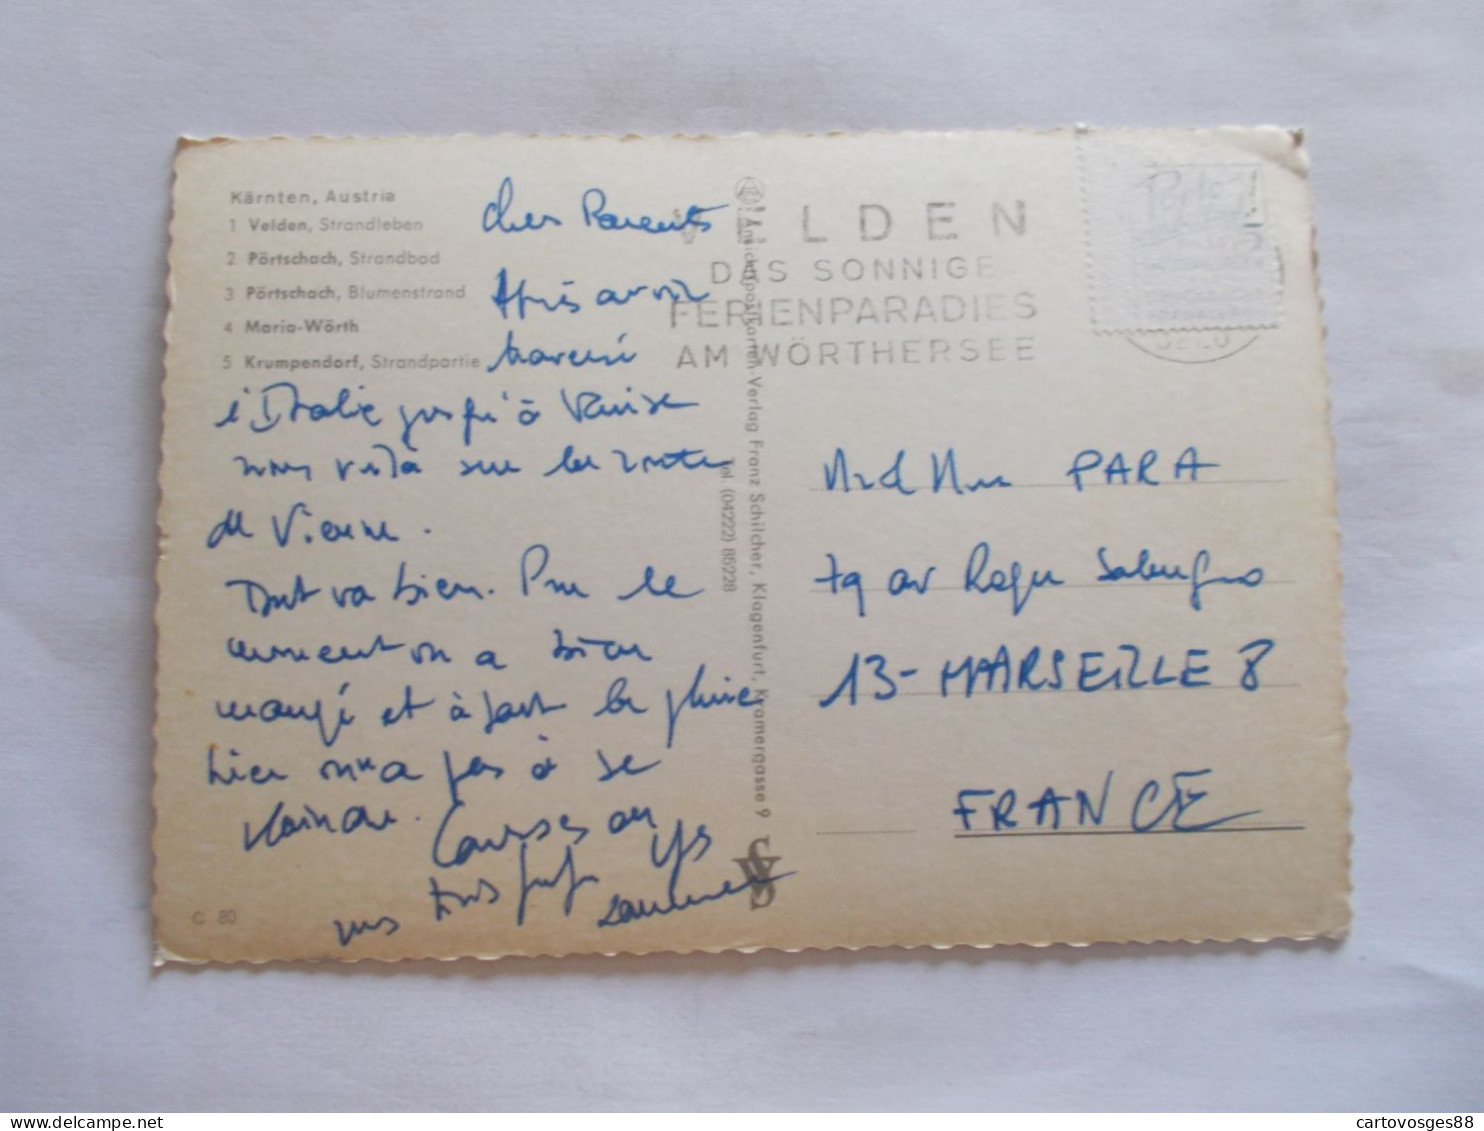 Kärnten, Austria
1 Velden, Strandleben
2 Pörtschach, Strandbad
3 Pörtschach, Blumenstrand
4 Maria-Wörth
5 Krumpendorf, Strandpartie
Chers Parents
Après avoir
traversé
l'Italie jusqu'à Venise
nous voilà sur la route
de Vienne.
Tout va bien. Pour le
moment on a bien
mangé et à part la pluie
hier on a pas à se
plaindre.
nous tous
C 80
VELDEN
DAS SONNIGE
FERIENPARADIES
AM WÖRTHERSEE
9220
Ansichtspostkarten-Verlag Franz Schilcher, Klagenfurt, Kramergasse 9
Tel. (04222) 85228
Mr et Mme PARA
79 av Roger Salengro
13-MARSEILLE 8
FRANCE
cartovosges88